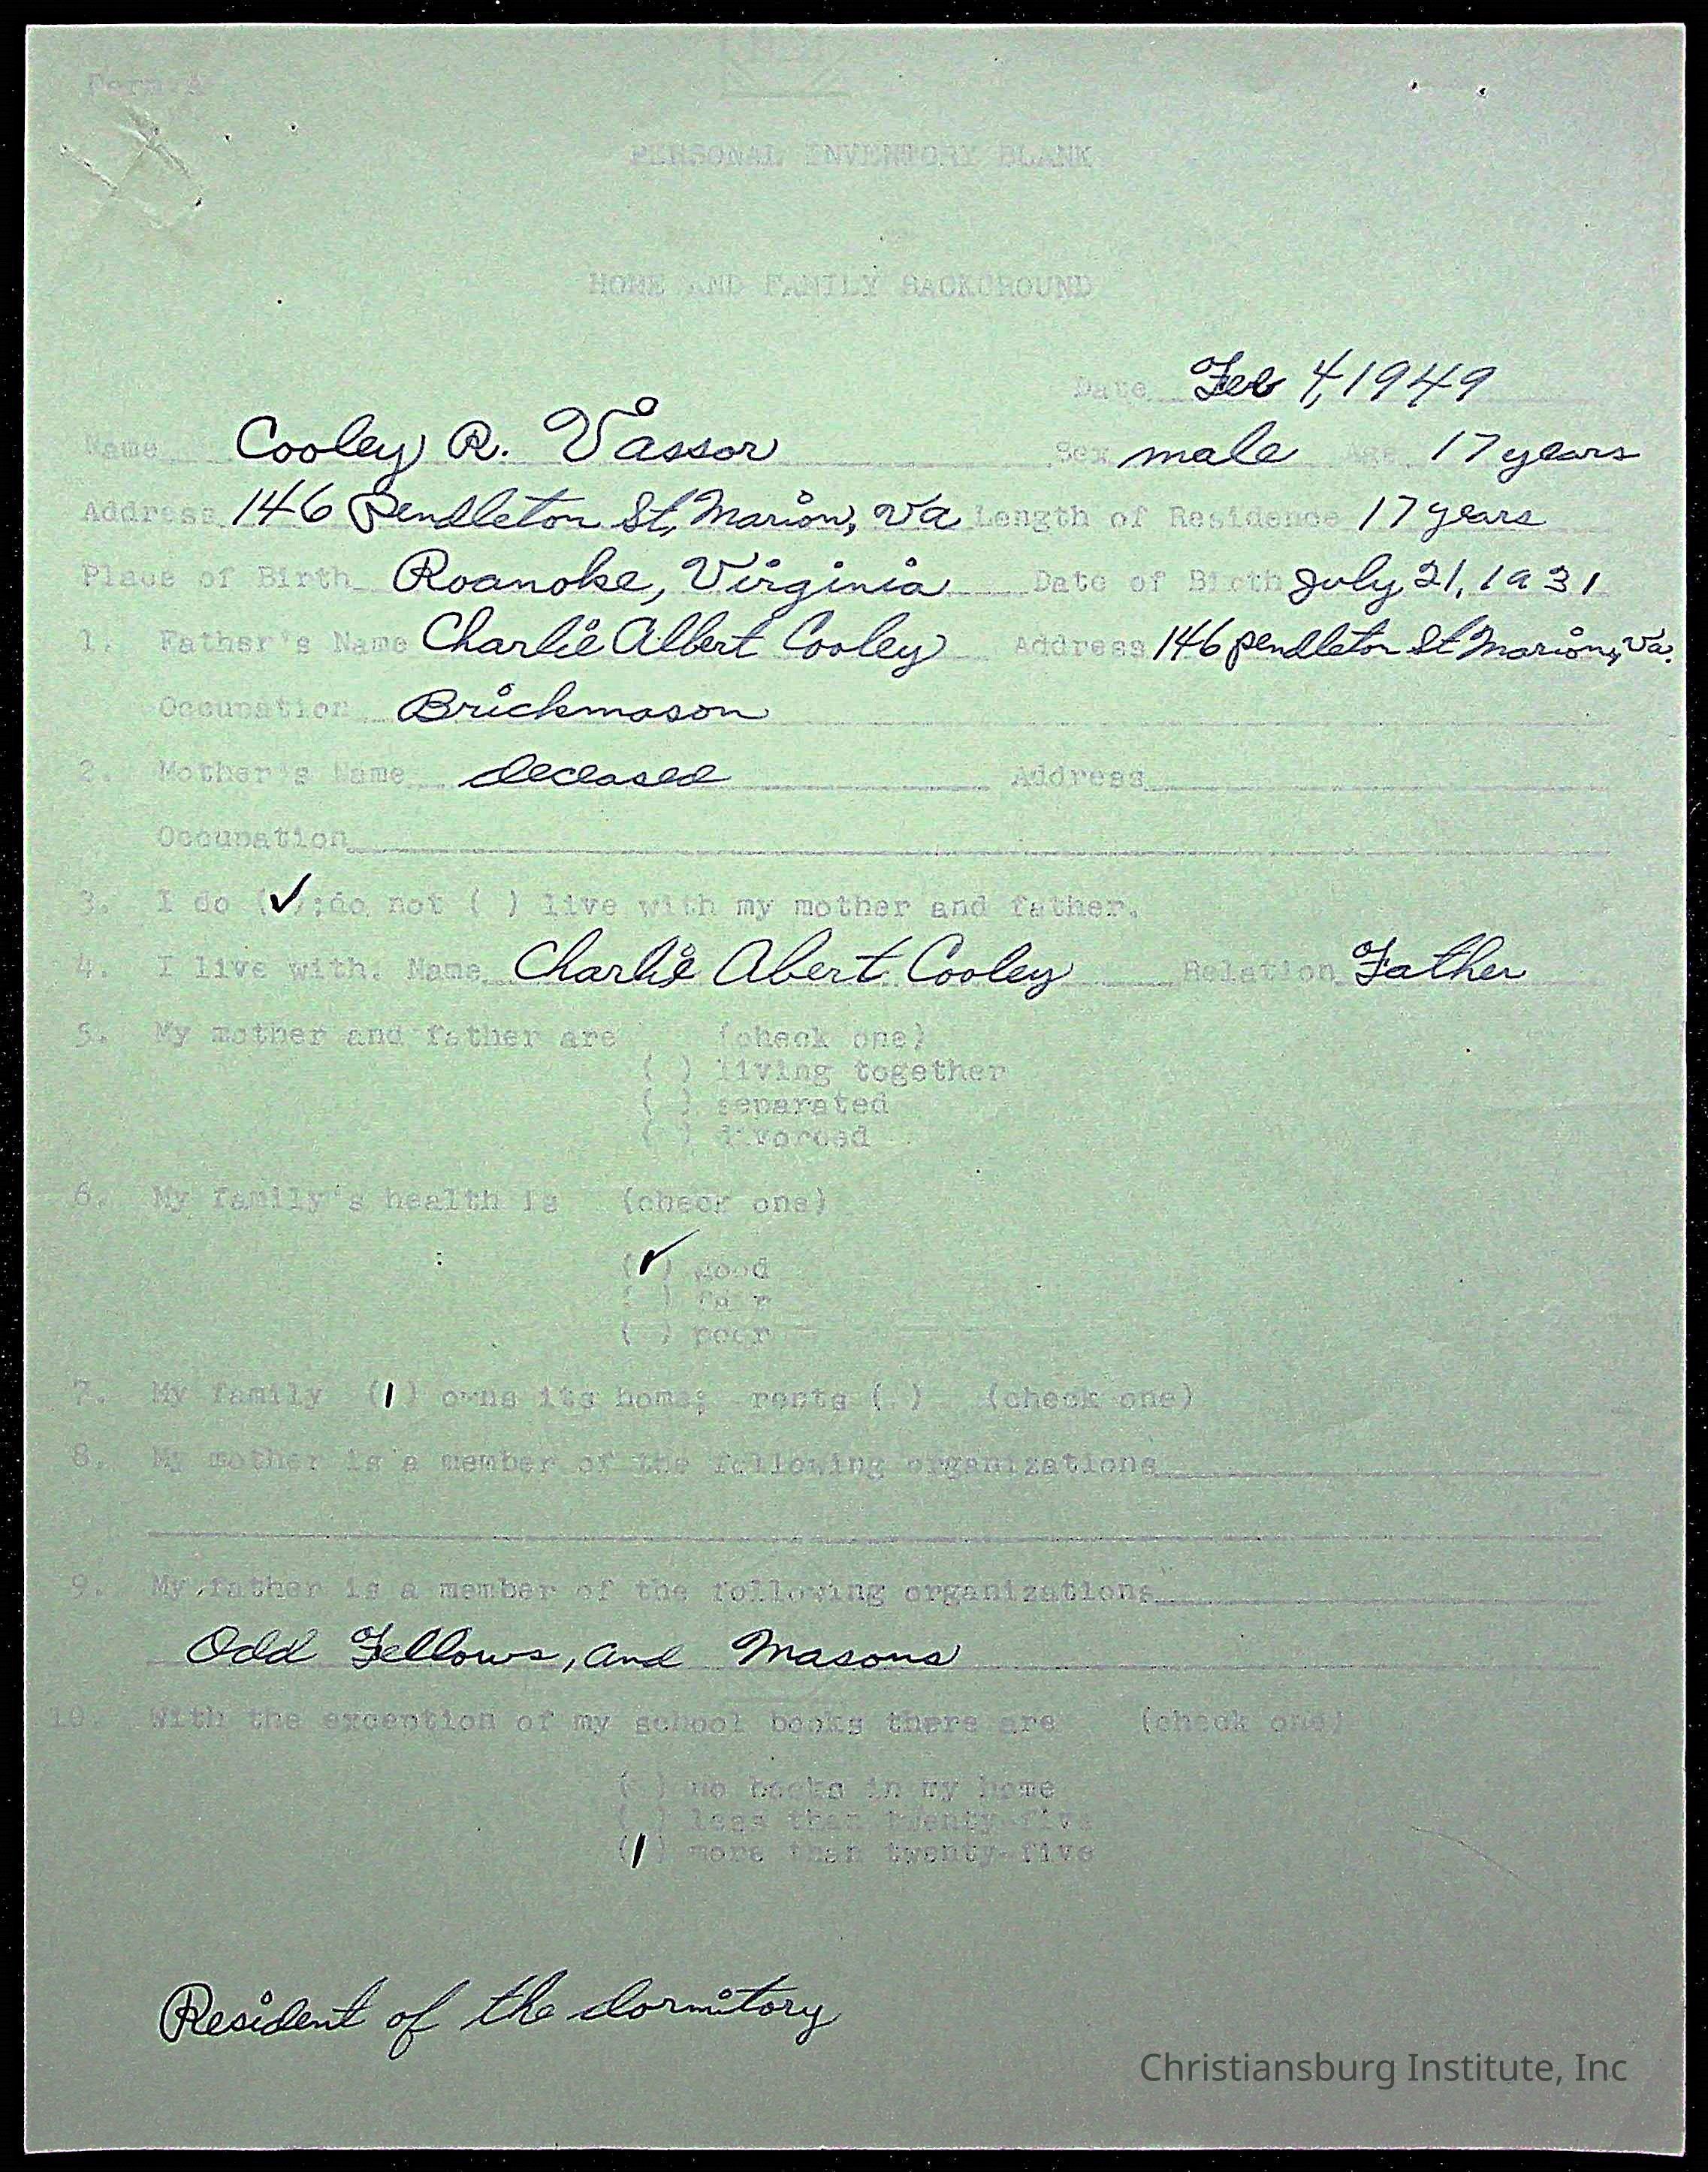 Form A
PERSONAL INVENTORY BLANK
HOME AND FAMILY BACKGROUND
Date Feb 4, 1949
Name Cooley R. Vassor Sex male Age 17 years
Address 146 Pendleton St, Marion, Va Length of Residence 17 years
Place of Birth Roanoke, Virginia Date of Birth July 21, 1931
1. Father's Name Charlie Albert Cooley Address 146 pendleton St Marion, Va.
Occupation Brickmason
2. Mother's Name deceased Address
Occupation
3. I do (✓);do not ( ) live with my mother and father.
4. I live with. Name Charlie Abert Cooley Relation Father
5. My mother and father are (check one)
( ) living together
( ) separated
( ) divorced
6. My family's health is (check one)
(✓) good
( ) fair
( ) poor
7. My family (1) owns its home; rents ( ) (check one)
8. My mother is a member of the following organizations
9. My father is a member of the following organizations
Odd Fellows, and Masons
10. With the exception of my school books there are (check one)
( ) no books in my home
( ) less than twenty-five
(1) more than twenty-five
Resident of the dormitory
Christiansburg Institute, Inc